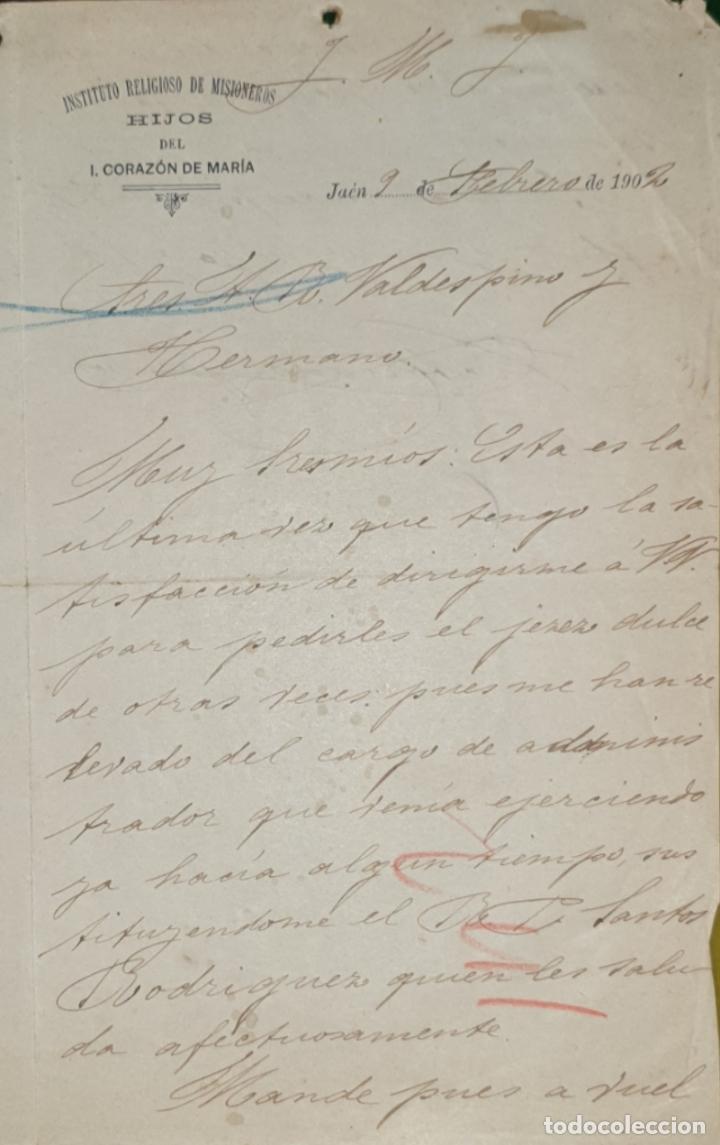 J. M. J.
INSTITUTO RELIGIOSO DE MISIONEROS
HIJOS
DEL
I. CORAZÓN DE MARÍA
Jaén 9 de Febrero de 1902
Sres. A. R. Valdespino y
Hermano.
Muy Sres míos: Esta es la
última vez que tengo la sa-
tisfacción de dirigirme á VV.
para pedirles el jerez dulce
de otras veces pues me han re
levado del cargo de adminis
trador que venía ejerciendo
ya hacía algún tiempo, sus
tituyendome el R. P. Santos
Rodriguez quien les salu-
da afectuosamente.
Mande pues a vuel
todocoleccion